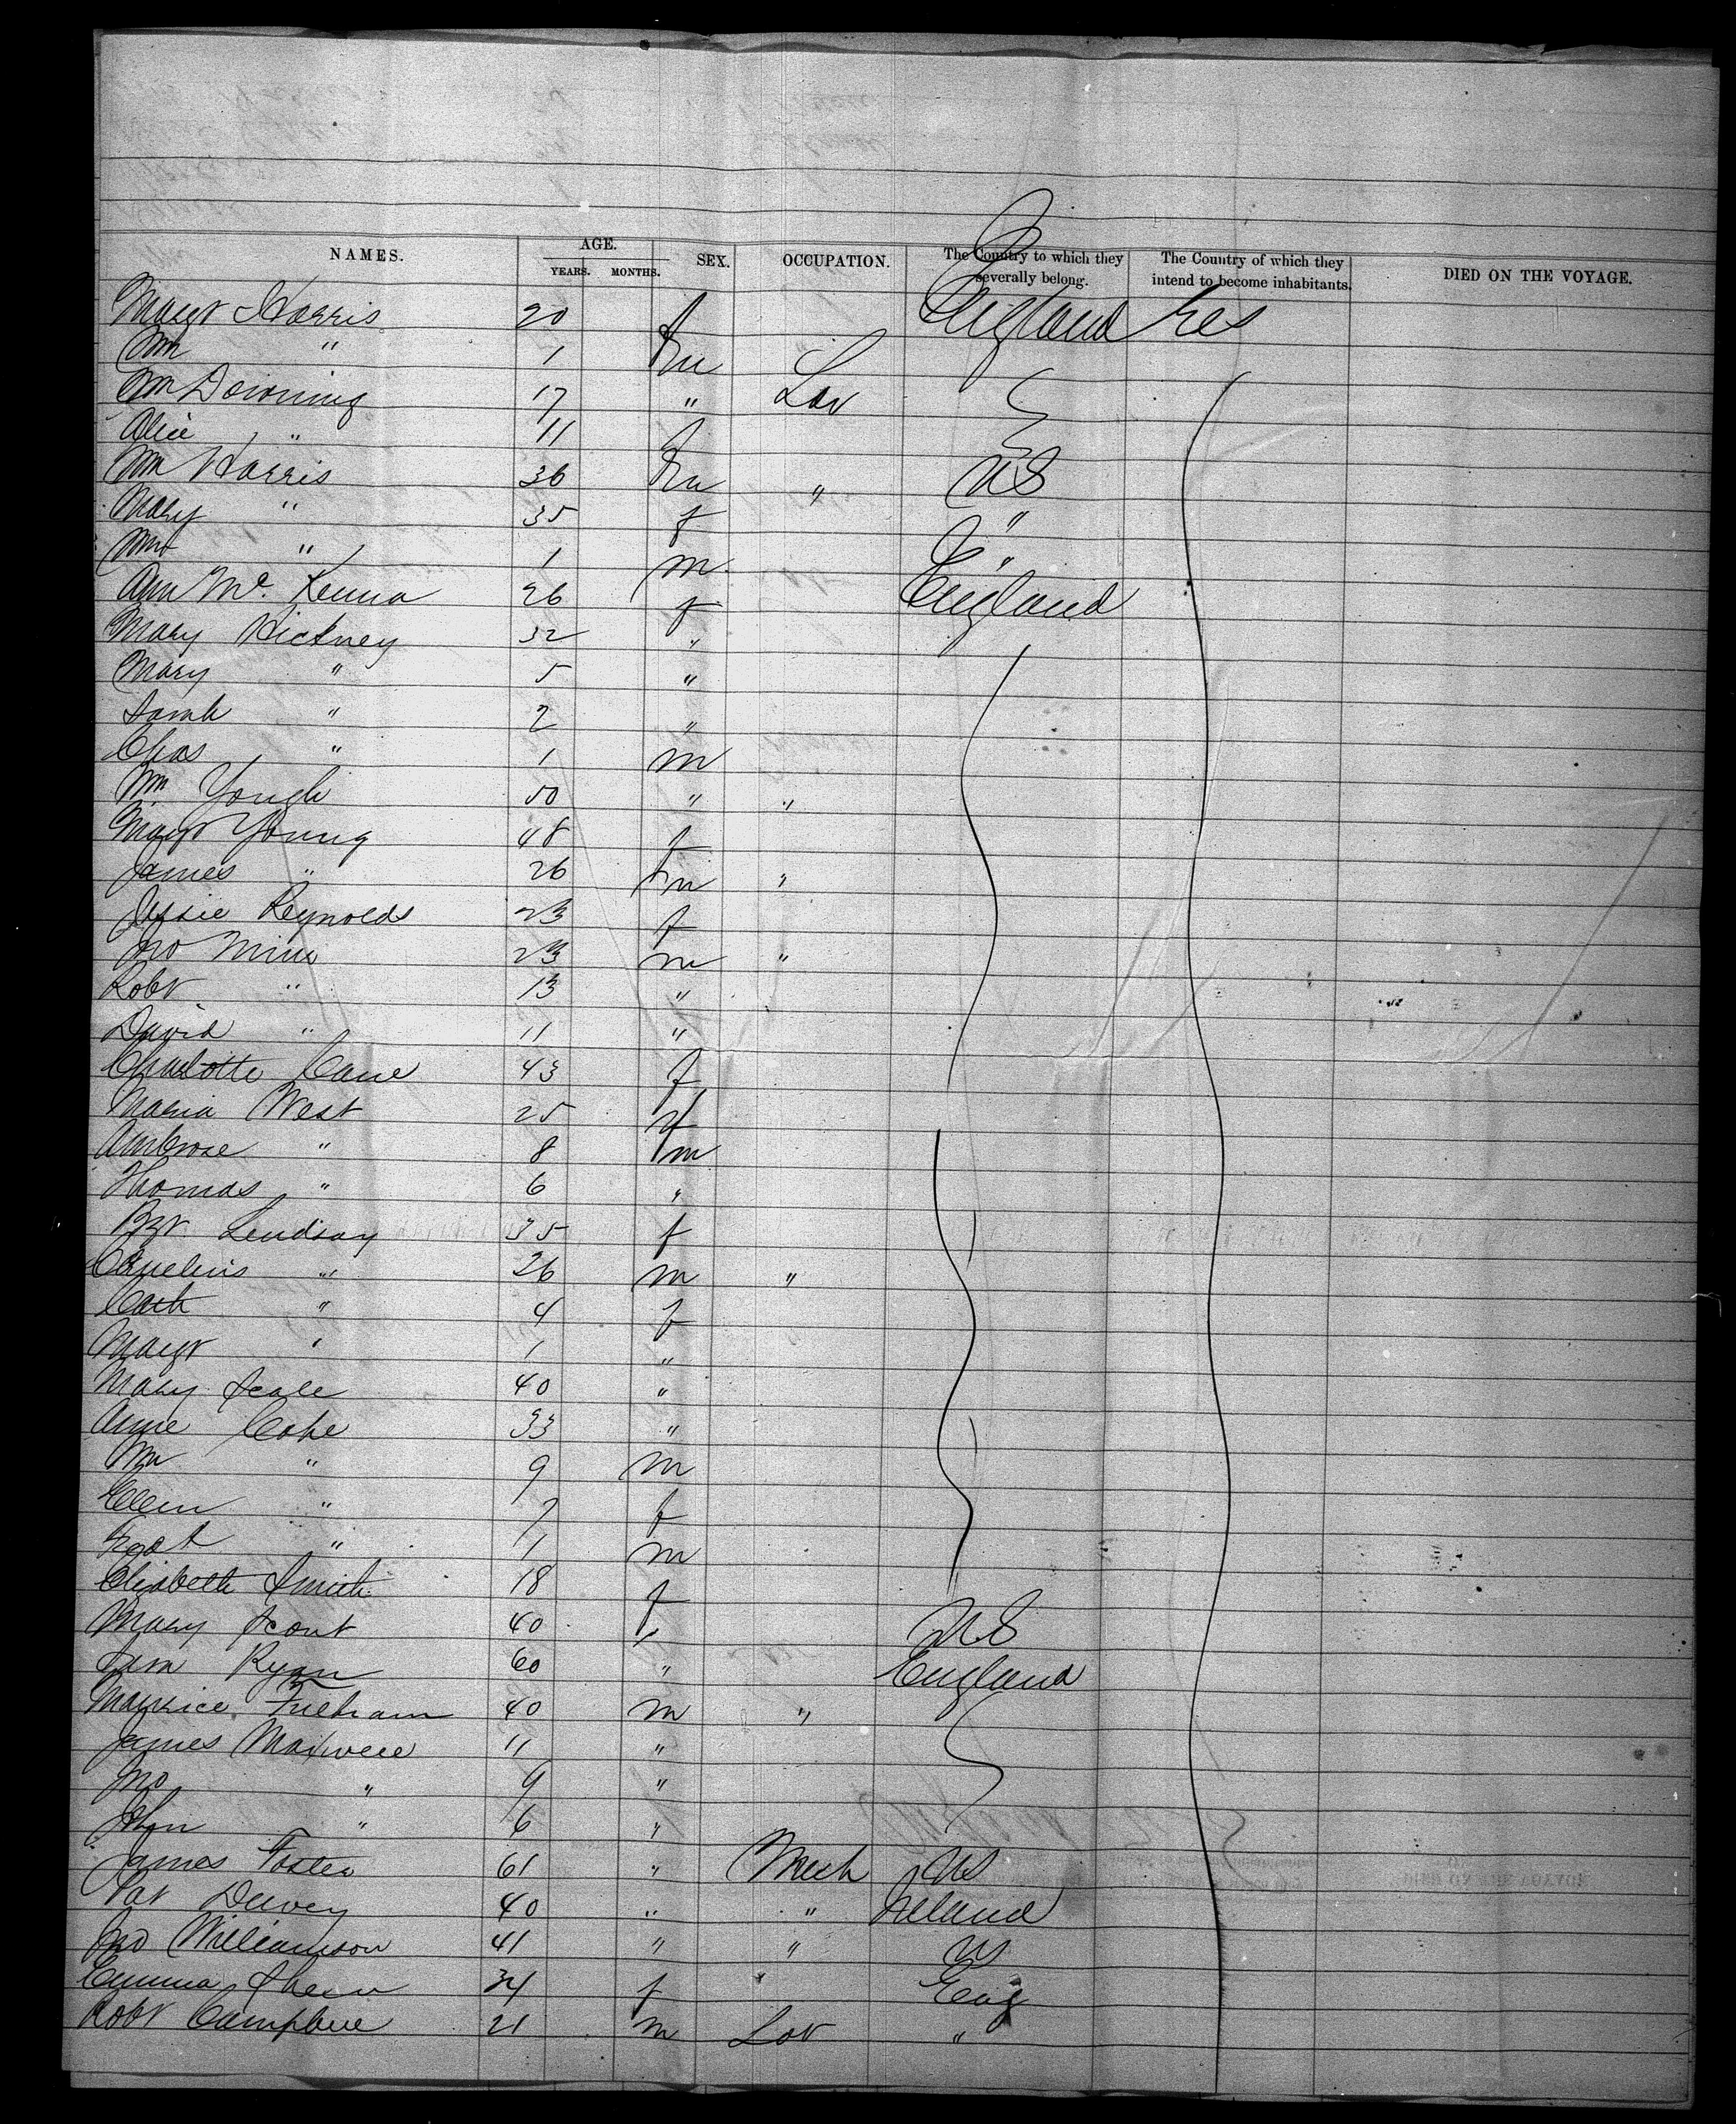 NAMES. AGE. YEARS. MONTHS. SEX. OCCUPATION. The Country to which they severally belong. The Country of which they intend to become inhabitants. DIED ON THE VOYAGE.
Margt Harris 20 f England
Wm " 1 m
Wm Downing 17 " Lab
Alice " 11 f
Wm Harris 36 m " US
Mary " 35 f "
Wm " 1 m "
Ann Mc Kenna 26 f England
Mary Hickney 32 "
Mary " 5 "
Sarah " 2 "
Chas " 1 m
Wm Yough 50 " "
Margt Young 48 f
James " 26 m "
Jessie Reynolds 23 f
Jno 23 m "
Robt " 13 "
David " 11 "
Charlotte Cane 43 f
Maria West 25 f
Ambrose " 8 m
Thomas " 6 "
Lindsay 35 f
Cornelius " 26 m "
Cath " 4 f
Margt " 1 "
Mary Seale 40 "
Anne Coke 33 "
Wm " 9 m
Ellen " 7 f
" 1 m
Elizabeth Smith 18 f
Mary Scout 40 " US
Ryan 60 " England
Maurice Fulham 40 m "
James Maxwell 11 "
Jno " 9 "
John " 6 "
James Foster 61 " Mech US
Pat 40 " " Ireland
Jno Williamson 41 " " US
Emma 34 f " Eng
Robt Campbell 21 m Lab "